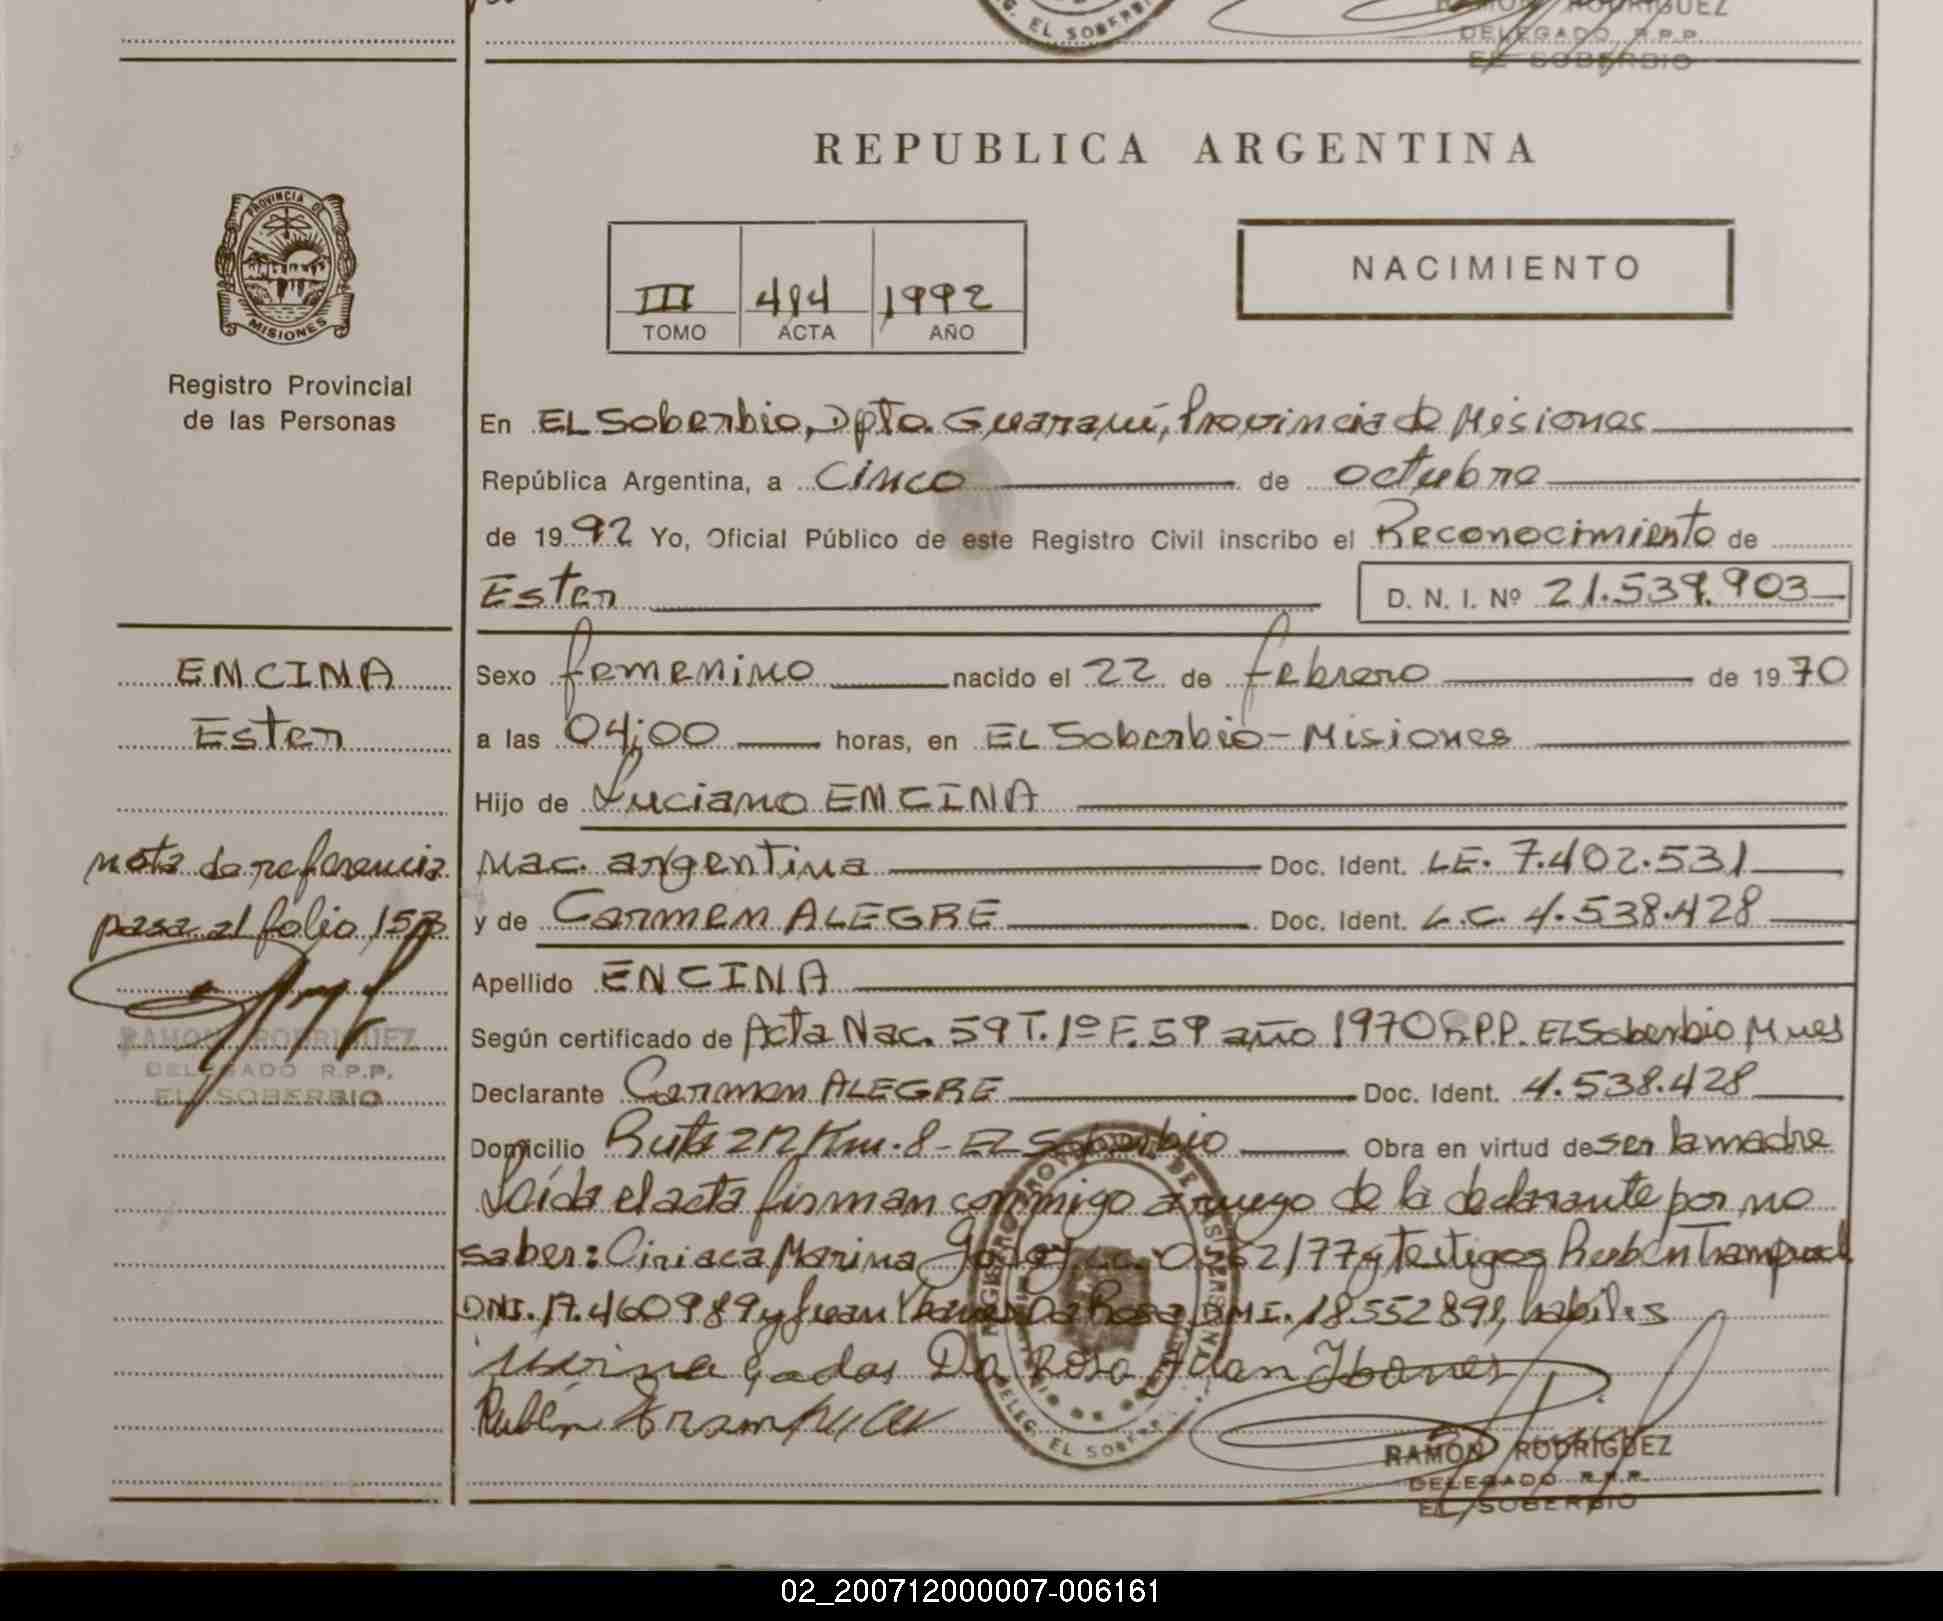 G. EL SOBERBIO
RAMON RODRIGUEZ
DELEGADO R.P.P.
EL SOBERBIO
REPUBLICA ARGENTINA
PROVINCIA DE
MISIONES
Registro Provincial
de las Personas
III 494 1992
TOMO ACTA AÑO
NACIMIENTO
En EL Soberbio, Dpto. Guaraní, Provincia de Misiones
República Argentina, a cinco de octubre
de 1992 Yo, Oficial Público de este Registro Civil inscribo el Reconocimiento de
Ester D. N. I. Nº 21.539.903
ENCINA
Ester
nota de referencia
pasa al folio 153
RAMON RODRIGUEZ
DELEGADO R.P.P.
EL SOBERBIO
Sexo femenino nacido el 22 de febrero de 1970
a las 04;00 horas, en EL Soberbio - Misiones
Hijo de Luciano ENCINA
Nac. argentina Doc. Ident. LE. 7.402.531
y de Carmen ALEGRE Doc. Ident. L.C. 4.538.428
Apellido ENCINA
Según certificado de Acta Nac. 59 T. 1º F. 59 año 1970 R.P.P. EL Soberbio Mnes
Declarante Carmen ALEGRE Doc. Ident. 4.538.428
Domicilio Ruta 212 Km. 8 - EL Soberbio Obra en virtud de ser la madre
Leída el acta firman conmigo a ruego de la declarante por no
saber: Ciriaca Marina Godoy 2/77 y Testigos Ruben
DNI. 17.460989 y Juan Da Rosa DNI. 18552891, habiles
Da Rosa Juan Ibanes
Rubén
DELEG. EL SOBERBIO
RAMON RODRIGUEZ
DELEGADO R.P.P.
EL SOBERBIO
02_200712000007-006161